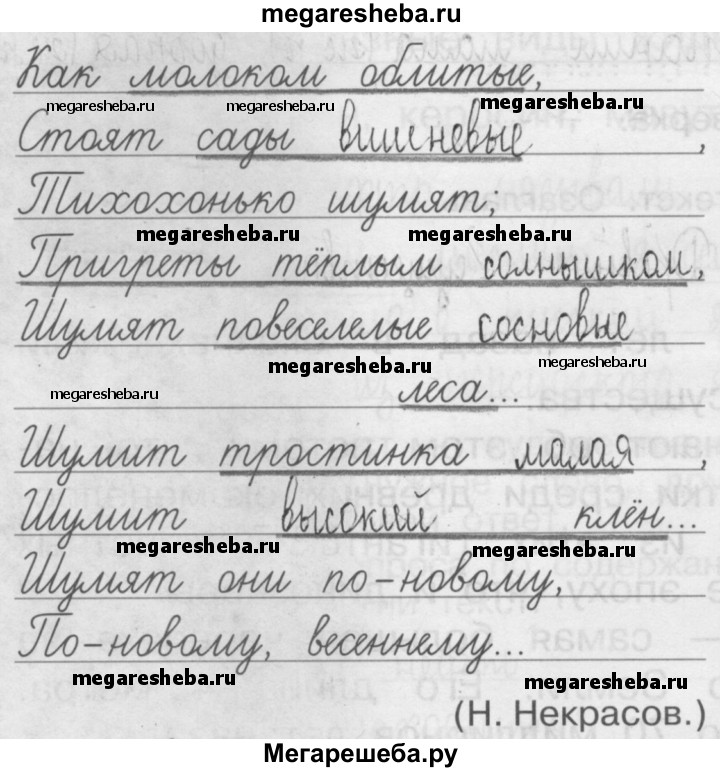 megaresheba.ru
Как молоком облитые,
megaresheba.ru megaresheba.ru megaresheba.ru
Стоят сады вишневые,
Тихохонько шумят;
megaresheba.ru megaresheba.ru
Пригреты тёплым солнышком,
Шумят повеселелые сосновые
megaresheba.ru megaresheba.ru
megaresheba.ru леса...
Шумит тростинка малая,
Шумит высокий клён...
megaresheba.ru megaresheba.ru
Шумят они по-новому,
По-новому, весеннему...
megaresheba.ru megaresheba.ru
(Н. Некрасов.)
Мегарешеба.ру